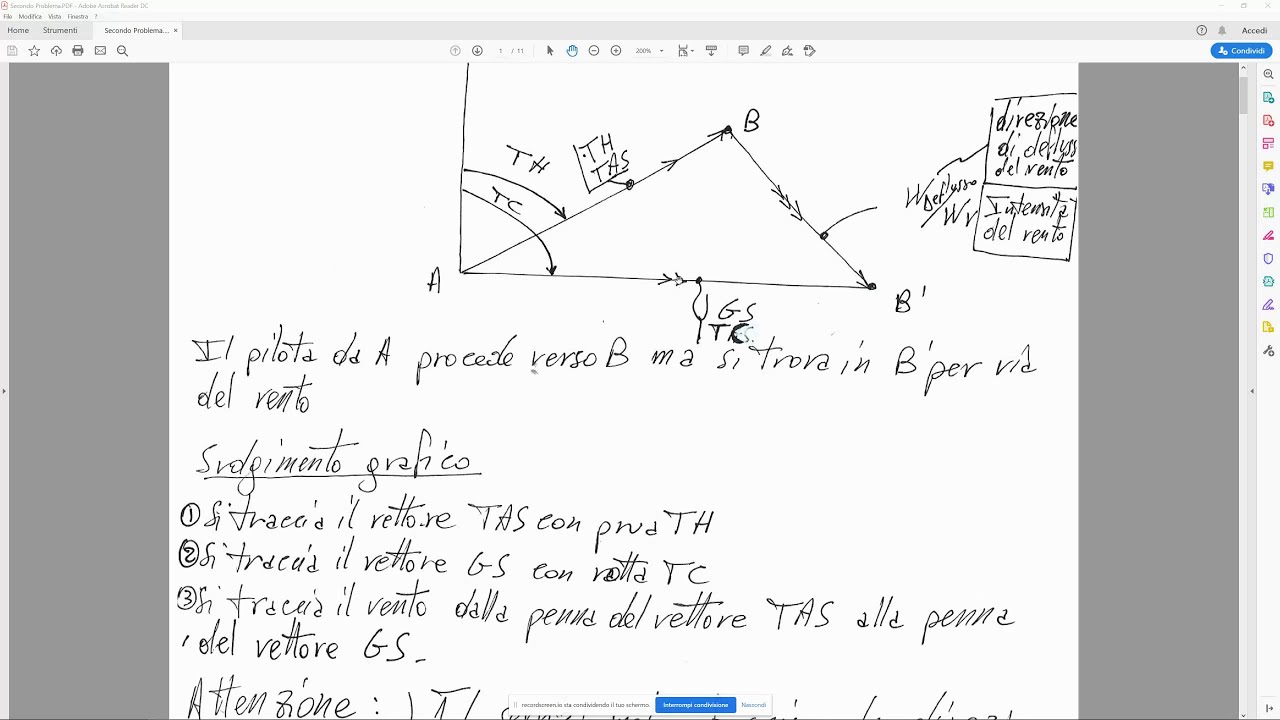 Secondo Problema.PDF - Adobe Acrobat Reader DC
File Modifica Vista Finestra ?
Home Strumenti Secondo Problema... × Accedi
1 / 11 200% Condividi
B
TH
TAS
TH
TC
A
B'
GS
TC
W Deflusso
/ Wv
direzione
di defluss
del vento
Intensità
del vento
Il pilota da A procede verso B ma si trova in B' per via
del vento
Svolgimento grafico
① Si traccia il vettore TAS con prua TH
② Si traccia il vettore GS con rotta TC
③ Si traccia il vento dalla penna del vettore TAS alla penna
del vettore GS.
Attenzione :
recordscreen.io sta condividendo il tuo schermo. Interrompi condivisione Nascondi